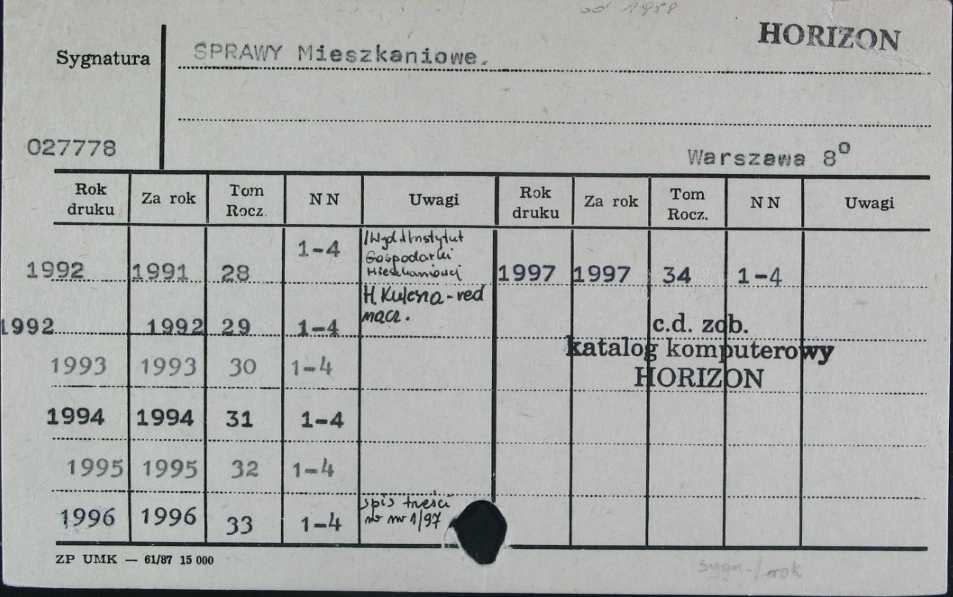 od 1958
HORIZON
Sygnatura SPRAWY Mieszkaniowe.
027778 Warszawa 8°
Rok druku Za rok Tom Rocz. NN Uwagi Rok druku Za rok Tom Rocz. NN Uwagi
1992 1991 28 1-4 /Wyd. Instytut Gospodarki Mieszkaniowej 1997 1997 34 1-4
1992 1992 29 1-4 H. Kulesza - red nacz.
c.d. zob.
katalog komputerowy
HORIZON
1993 1993 30 1-4
1994 1994 31 1-4
1995 1995 32 1-4
1996 1996 33 1-4 spis treści w nr 1/97
ZP UMK — 61/87 15 000
sygn-/rok